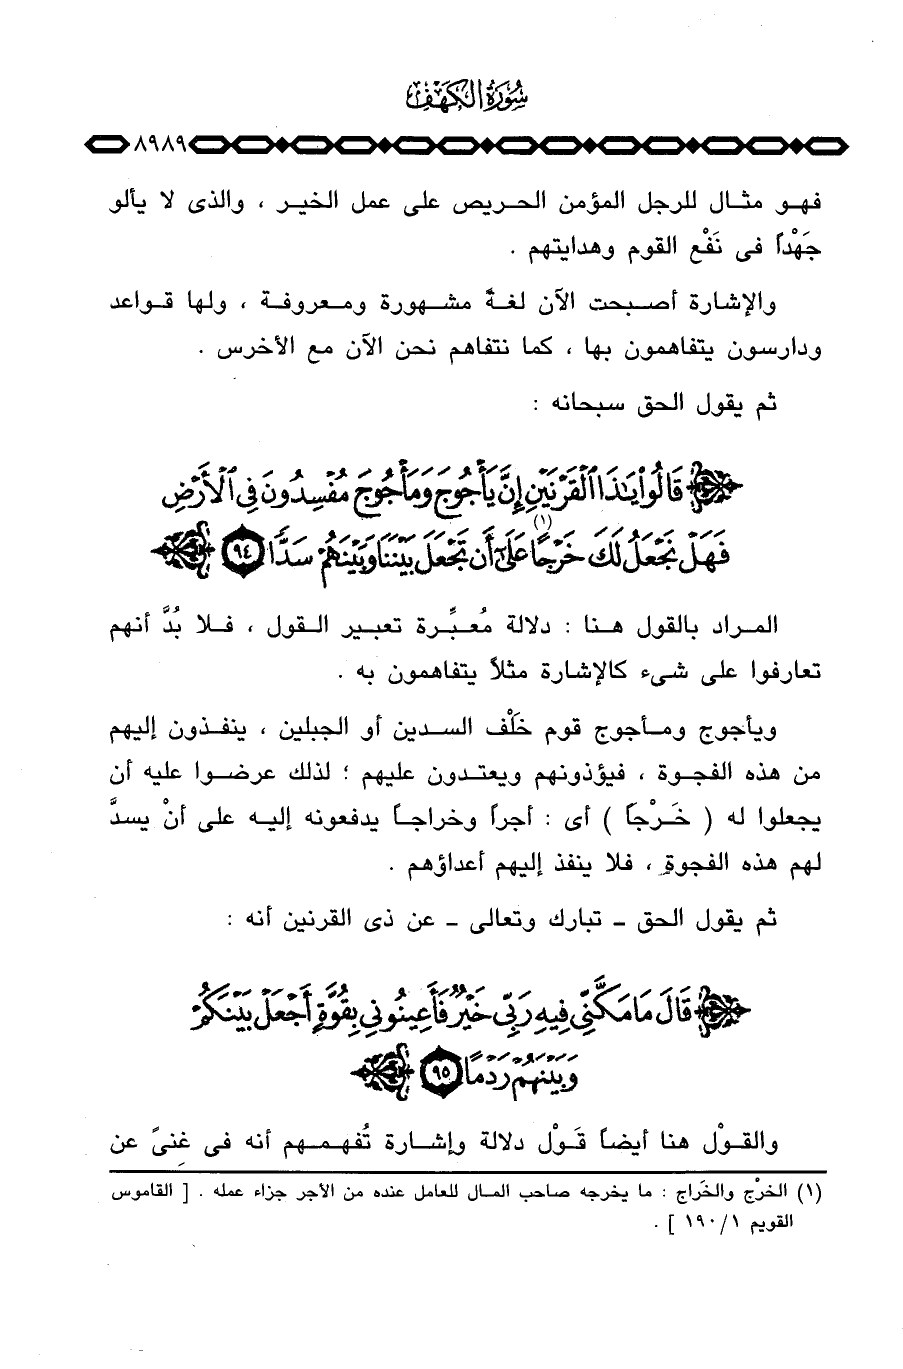 سُورَةُ الكَهْفِ
٨٩٨٩
فهـو مثـال للرجل المؤمن الحـريص على عمل الخيـر ، والذى لا يألو
جَهْداً فى نَفْع القوم وهدايتهم .
والإشارة أصـبحت الآن لغـةً مشـهورة ومـعروفـة ، ولها قـواعد
ودارسون يتفاهمون بها ، كما نتفاهم نحن الآن مع الأخرس .
ثم يقول الحق سبحانه :
قَالُوا يَٰذَا الْقَرْنَيْنِ إِنَّ يَأْجُوجَ وَمَأْجُوجَ مُفْسِدُونَ فِى الْأَرْضِ
فَهَلْ نَجْعَلُ لَكَ خَرْجًا (١) عَلَىٰٓ أَن تَجْعَلَ بَيْنَنَا وَبَيْنَهُمْ سَدًّا ٩٤
المـراد بالقول هنـا : دلالة مُعـبِّـرة تعبيـر القـول ، فـلا بُدَّ أنهم
تعارفوا على شىء كالإشارة مثلاً يتفاهمون به .
ويأجوج ومـأجوج قوم خَلْف السـدين أو الجبلين ، ينفـذون إليهم
من هذه الفـجـوة ، فيؤذونهم ويعتـدون عليهم ؛ لذلك عرضـوا عليه أن
يجعلوا له ( خَـرْجاً ) أى : أجراً وخراجـاً يدفعونه إليـه على أنْ يسدَّ
لهم هذه الفجوة ، فلا ينفذ إليهم أعداؤهم .
ثم يقول الحق ـ تبارك وتعالى ـ عن ذى القرنين أنه :
قَالَ مَا مَكَّنِّى فِيهِ رَبِّى خَيْرٌ فَأَعِينُونِى بِقُوَّةٍ أَجْعَلْ بَيْنَكُمْ
وَبَيْنَهُمْ رَدْمًا ٩٥
والقـوْل هنا أيضـاً قَـوْل دلالة وإشـارة تُفهـمـهم أنه فى غنىً عن
(١) الخَرْج والخَراج : ما يخرجه صاحب المـال للعامل عنده من الأجر جزاء عمله . [ القاموس
القويم ١٩٠/١ ] .